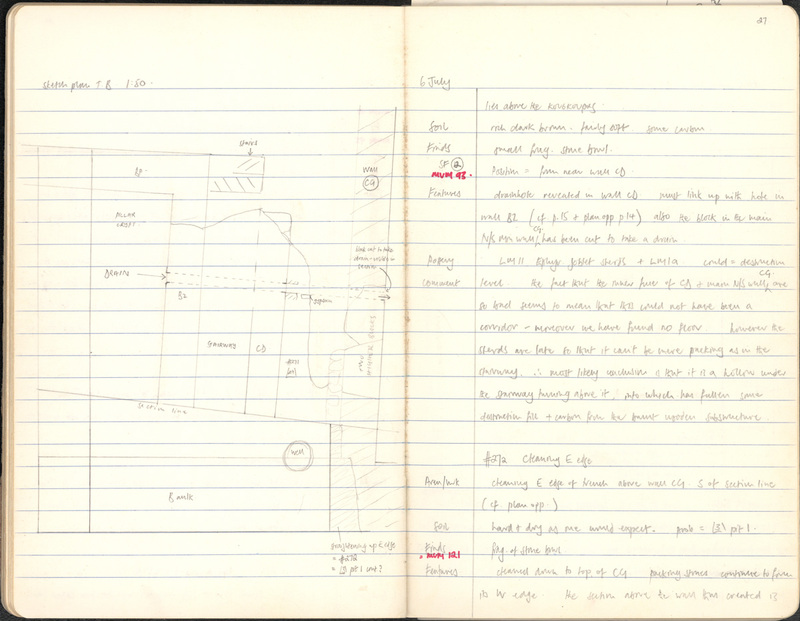 sketch plan T B 1:50.
stairs
BP
WALL
CG
PILLAR
CRYPT
block cut to take
drain
DRAIN
B2
gypsum
STAIRWAY CD
section line
well
Baulk
straightening up E edge
= #272
27
6 July
lies above the kouskouras.
Soil rich dark brown. fairly soft. some carbon
Finds small frag. stone bowl.
SF 2 Position = from near wall CD.
MUM 93.
Features drainhole revealed in wall CD must link up with hole in
wall B2 (cf p.15 + plan opp p14) also the block in the main
N/S wall CG has been cut to take a drain
Pottery LMII Ephyr. goblet sherds + LMIA could = destruction
Comment level. The fact that the inner face of CD + main N/S wall CG are
so bad seems to mean that this could not have been a
corridor - moreover we have found no floor. however the
sherds are late so that it can't be mere packing as in the
stairway. ∴ most likely conclusion is that it is a hollow under
the stairway turning above it, into which has fallen some
destruction fill + carbon from the burnt wooden substructure.
#272 Cleaning E edge
Area/wk cleaning E edge of trench above wall CG. S of section line
(cf plan opp.)
Soil hard + dry as one would expect. prob = pit 1.
Finds frag. of stone bowl
MUM 121
Features cleaned down to top of CG packing stones continue to form
its W edge. the section above the wall thus created is